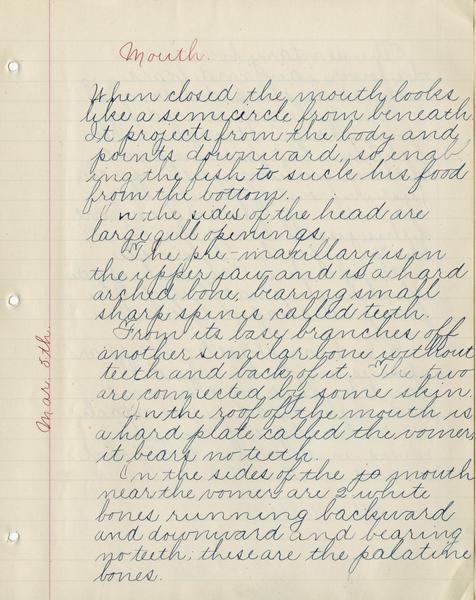 Mouth.
When closed the mouth looks
like a semicircle from beneath.
It projects from the body and
points downward, so enab
ing the fish to suck his food
from the bottom.
On the sides of the head are
large gill openings.
The pre-maxillary is in
the upper jaw and is a hard
arched bone, bearing small
sharp spines called teeth.
From its base branches off
another similar bone without
teeth and back of it. The two
are connected by some skin.
Mar. 8th.
In the roof of the mouth is
a hard plate called the vomer,
it bears no teeth.
On the sides of the mouth
near the vomer are 2 white
bones running backward
and downward and bearing
no teeth; these are the palatine
bones.